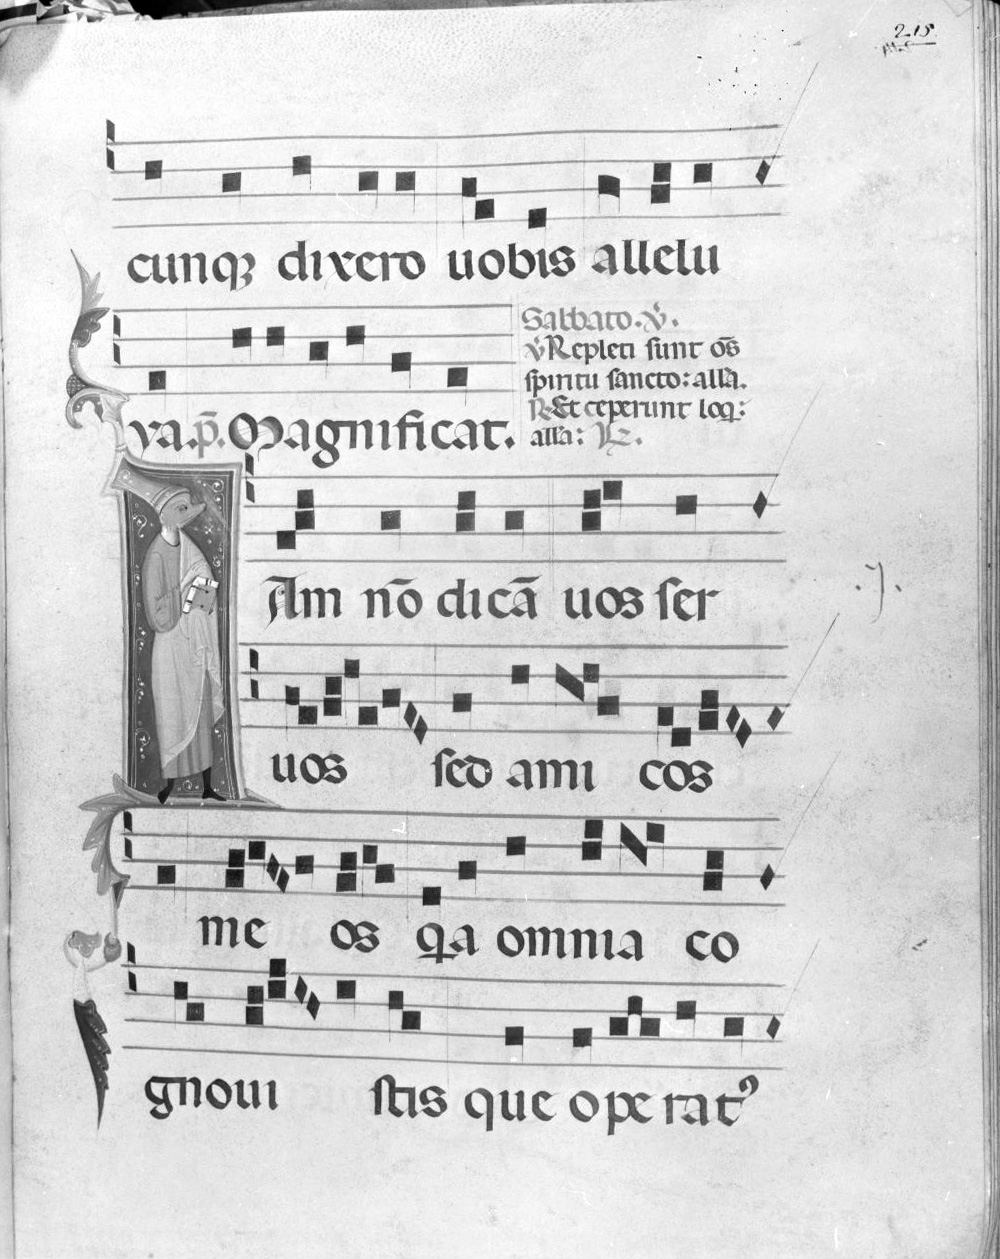 215
cunqꝫ dixero uobis allelu
Sabbato. v̇.
v̇ Repleti sunt oō̄s
spiritu sancto: alla̅.
ya. p̄. Magnificat.
R. Et ceperunt loq̄:
alla̅:
Iam nō dicā uos ser
.y.
uos sed ami cos
me os q̄a omnia co
gnoui stis que ope ratꝰ